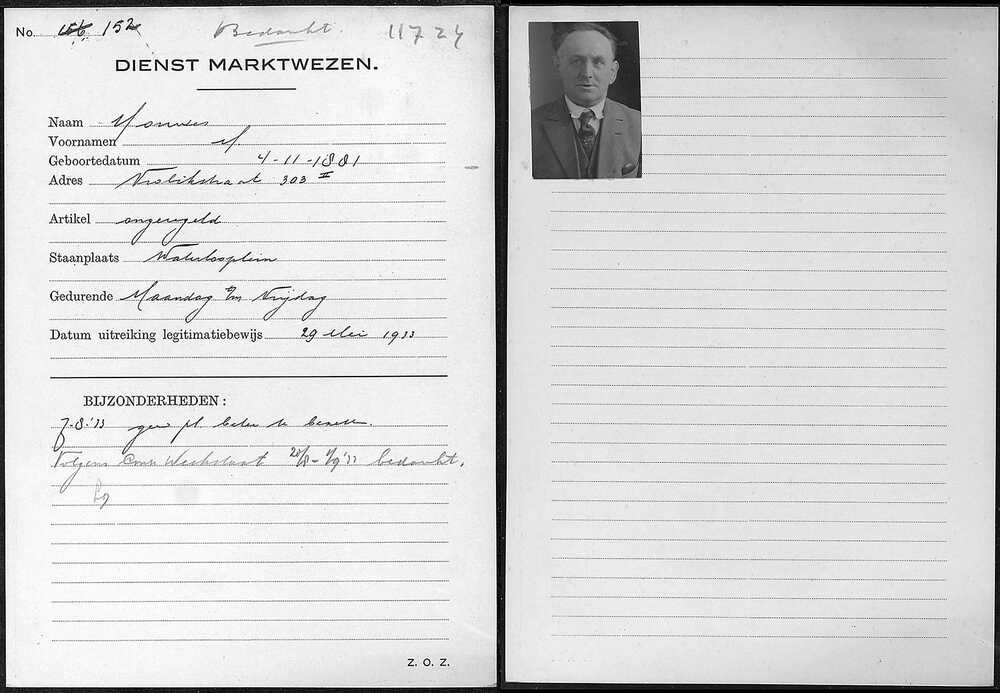 No. 152 Bedankt. 11724
DIENST MARKTWEZEN.
Naam
Voornamen M.
Geboortedatum 4-11-1881
Adres Vrolikstraat 303 II
Artikel ongeregeld
Staanplaats Waterlooplein
Gedurende Maandag t/m Vrijdag
Datum uitreiking legitimatiebewijs 29 Mei 1933
BIJZONDERHEDEN:
7-8-'33 gew pl beter te bezetten.
Volgens Contr Weekstaat 28/8 - 2/9 '33 bedankt.
Z. O. Z.